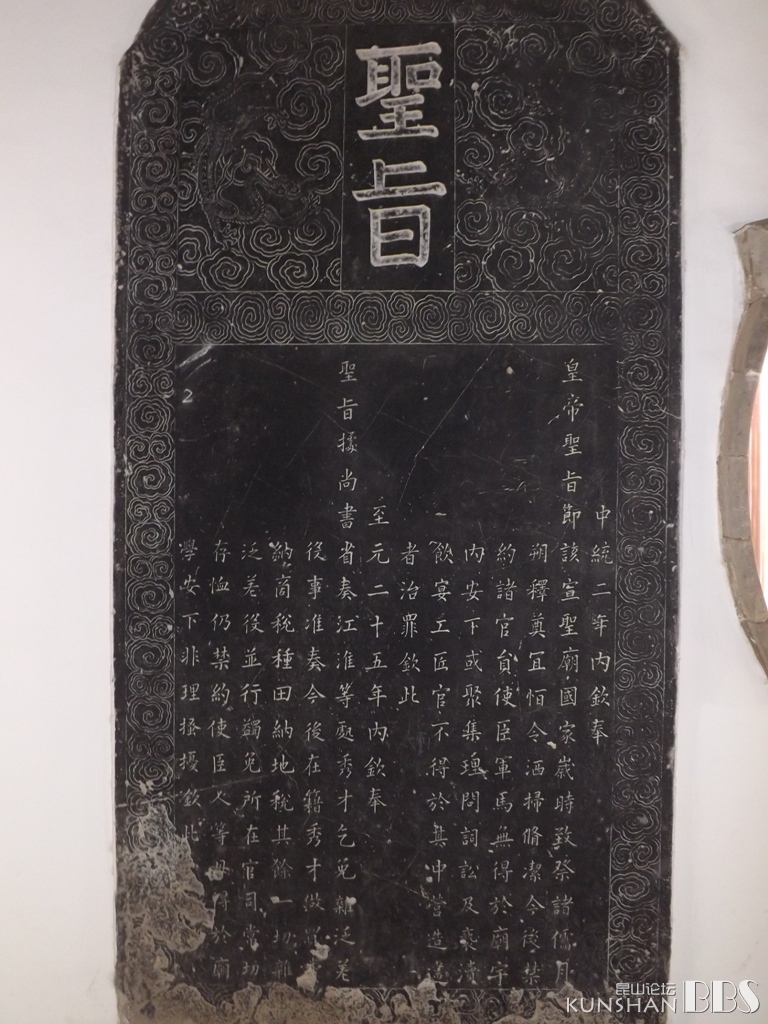 聖旨
中統二年內欽奉
皇帝聖旨節該宣聖廟國家歲時致祭諸儒月
朔釋奠冝恒令洒掃脩潔今後禁
約諸官貟使臣軍馬無得於廟宇
內安下或聚集理問詞訟及褻瀆
飲宴工匠官不得於其中營造違
者治罪欽此
至元二十五年內欽奉
聖旨據尚書省奏江淮等處秀才乞免雜泛差
役事准奏今後在籍秀才做買
納商稅種田納地稅其餘一切雜
泛差役並行蠲免所在官司常切
存恤仍禁約使臣人等毋得於廟
學安下非理搔擾欽此
昆山论坛
KUNSHAN BBS